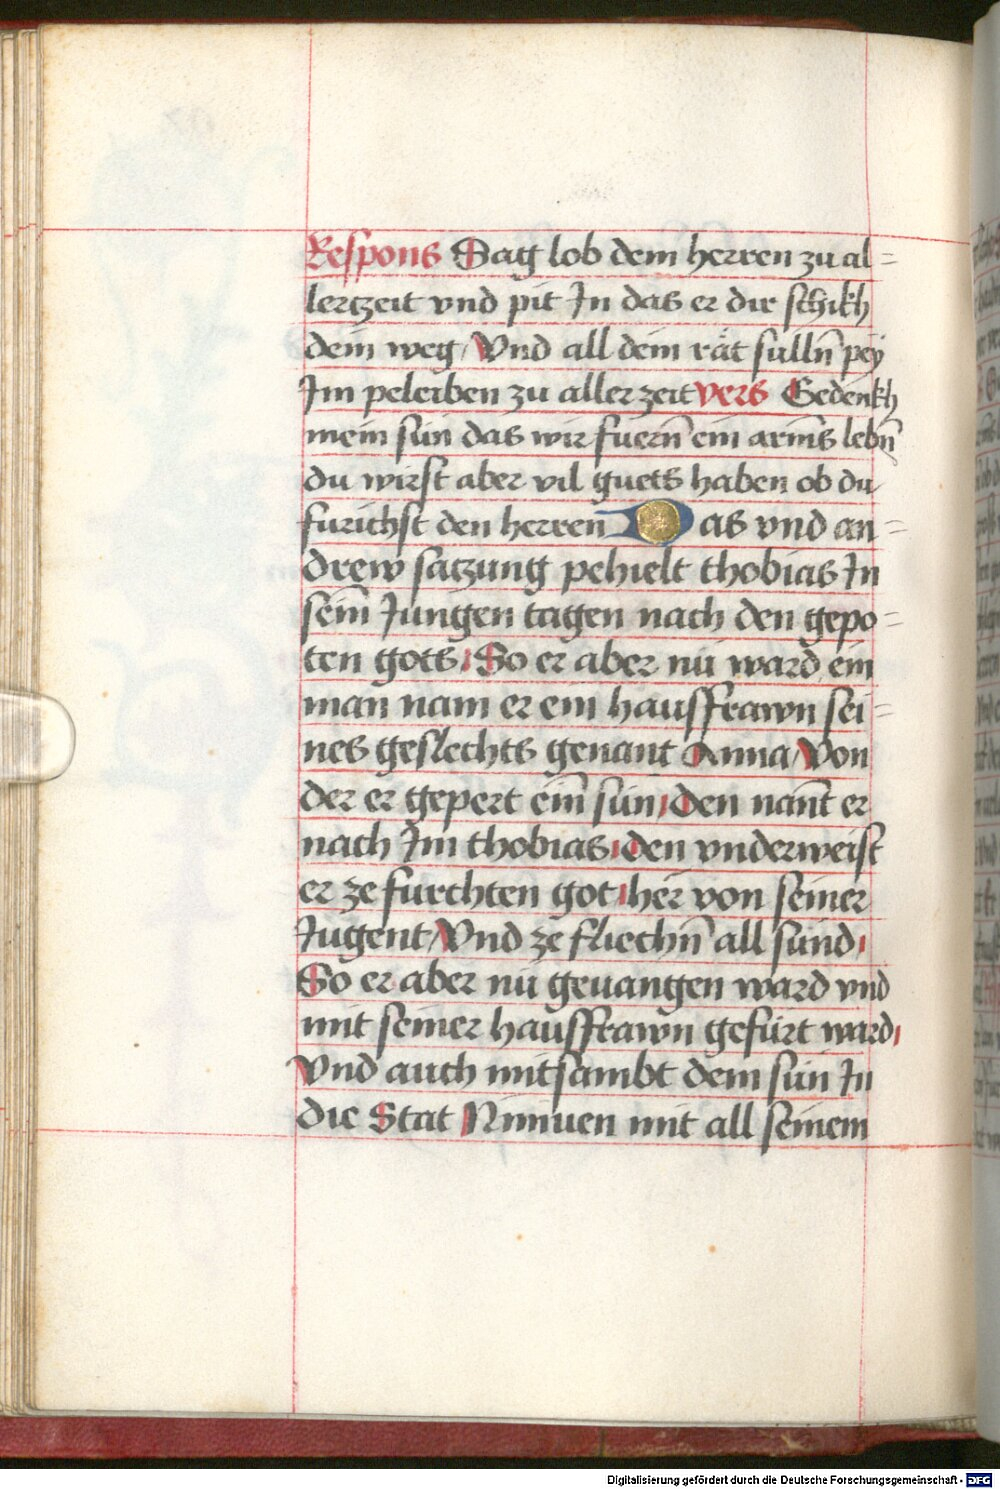 Respons Sag lob dem herren zu al=
lerczeit vnd pit In das er dir schikh
dein weg / Vnd all dein rät sulln̄ peÿ
Im peleiben zu aller zeit vers Gedenkh
mein sun das wir fuern̄ ein arm̄s lebn̄
du wirst aber vil guets haben ob du
furichst den herren Das vnd an=
drew saczung pehielt thobias In
sein̄ Jungen tagen nach den gepo=
ten gots / So er aber nu ward ein
man nam er ein hausffrawn sei=
nes geslechts genant Anna / Von
der er gepert ein̄ sun / den nan̄t er
nach Im thobias / den vnderweist
er ze furchten got / her von seiner
Jugent / Vnd ze fliechn̄ all sund /
So er aber nu geuangen ward vnd
mit seiner hausffrawn gefurt ward /
Vnd auch mitsambt dem sun In
die Stat Niniuen mit all seinem
Digitalisierung gefördert durch die Deutsche Forschungsgemeinschaft - DFG